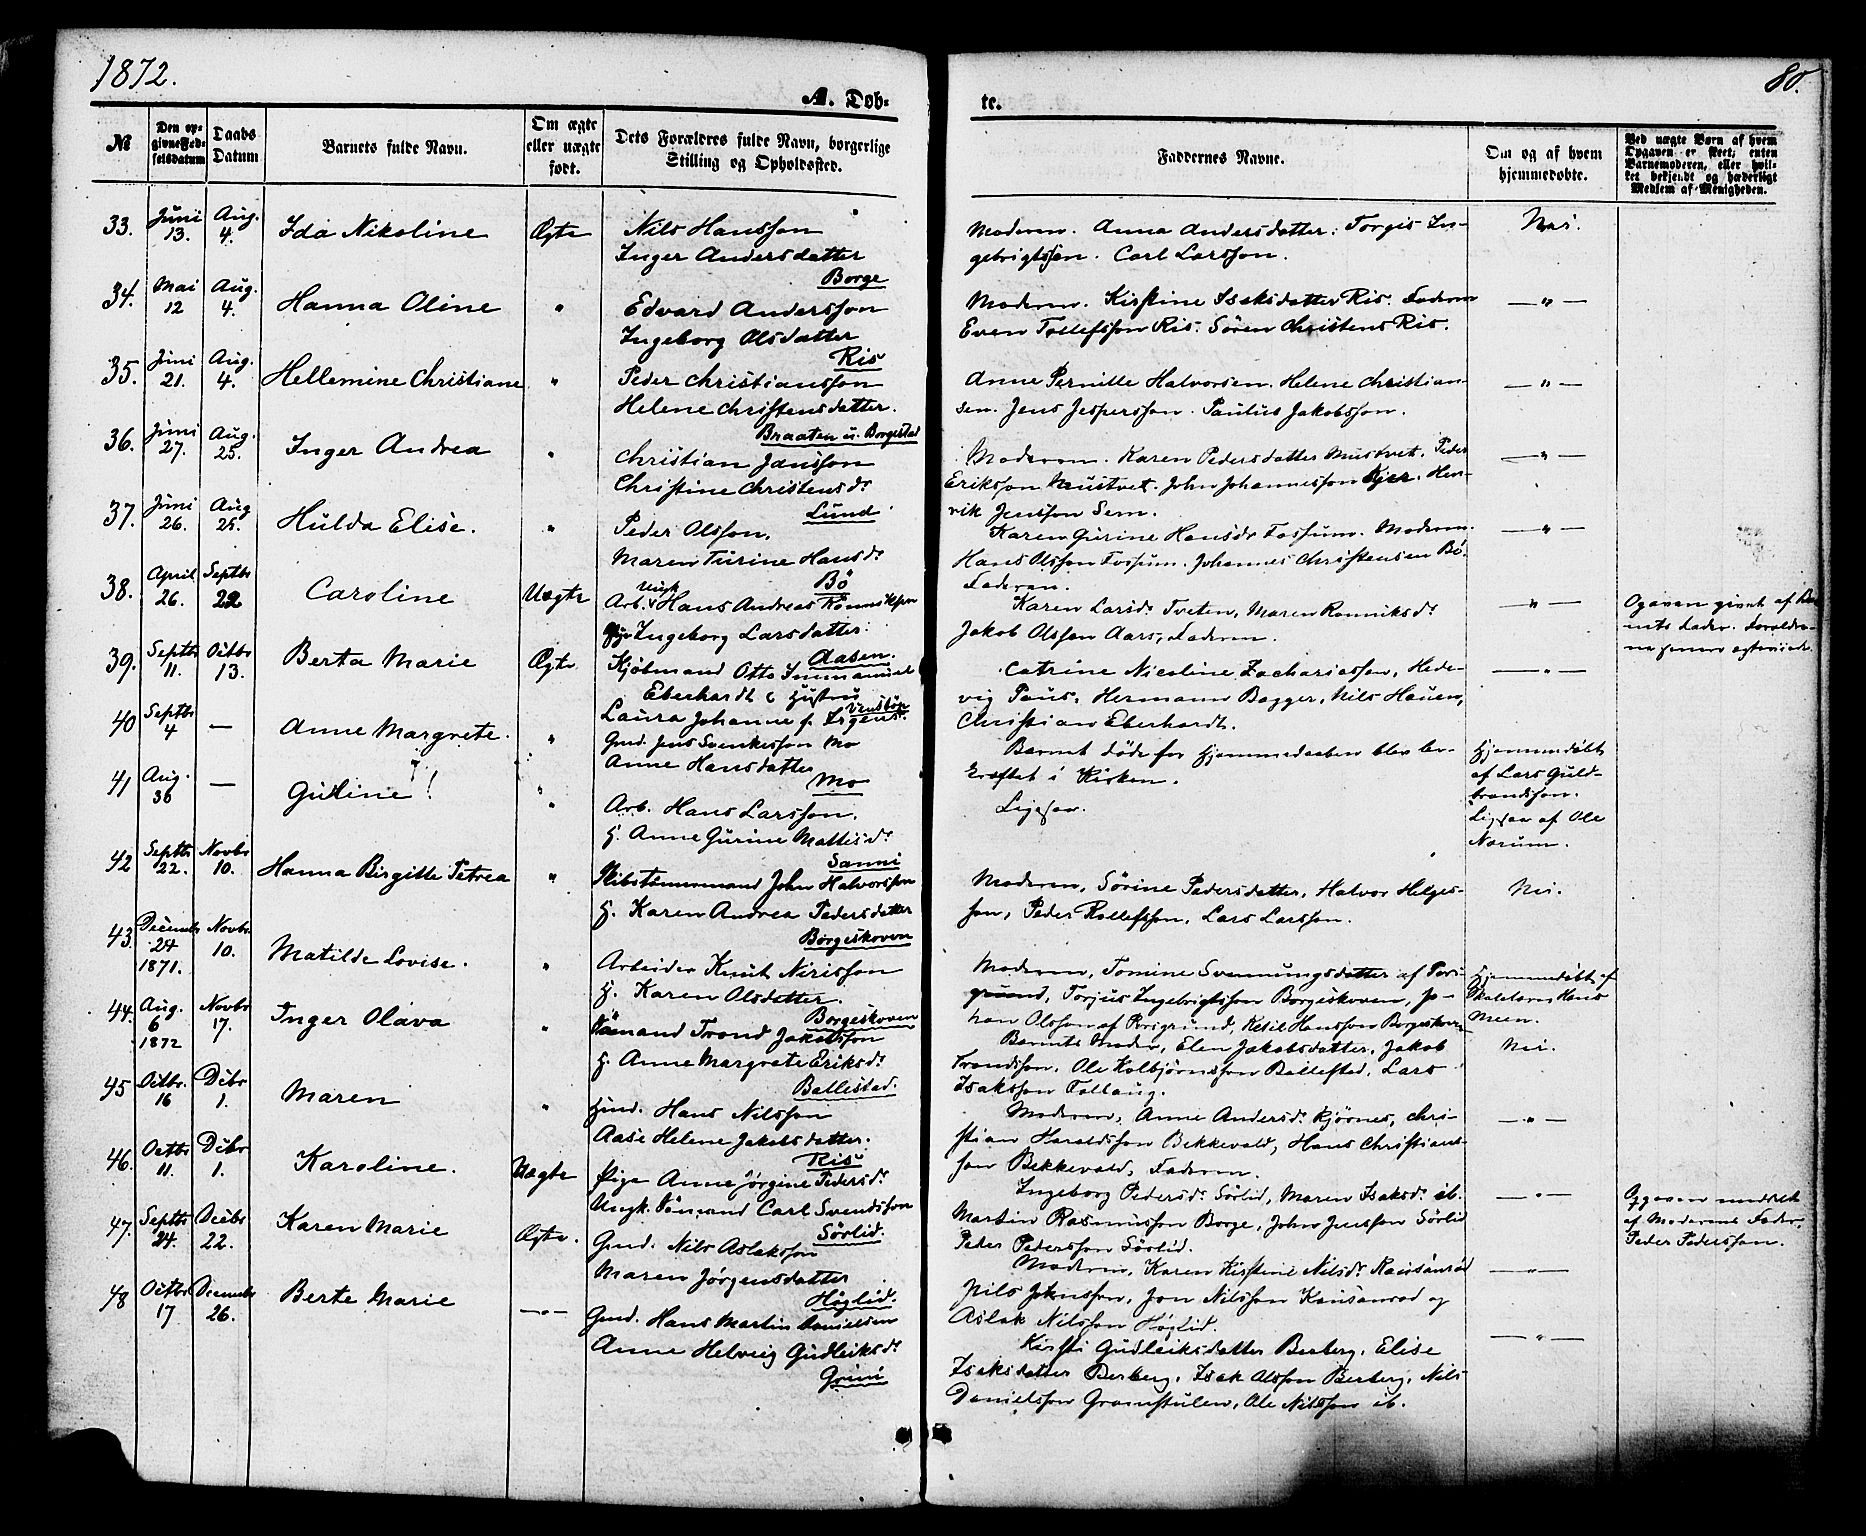 1872.
80.
A. Døb-
te.
№
Den op-
givne Fød-
selsdatum
Daabs
Datum
Barnets fulde Navn.
Om ægte
eller uægte
født.
Dets Forældres fulde Navn, borgerlige
Stilling og Opholdssted.
Faddernes Navne.
Om og af hvem
hjemmedøbte.
Ved uægte Børn af hvem
Opgaven er skeet; enten
Barnemoderen, eller hvil-
ket bekjendt og hæderligt
Medlem af Menigheden.
33. Juni 13. Aug. 4. Ida Nikoline Ægte
Nils Hansson
Inger Andersdatter
Borge
Moderen. Anna Andersdatter. Torgis In-
gebrigtsson. Carl Larsson.
Nei.
34. Mai 12 Aug. 4. Hanna Oline "
Edvard Andersson
Ingeborg Olsdatter
Ris
Moderen. Kirstine Isaksdatter Ris. Faderen
Even Tollefsson Ris. Sören Christens Ris.
— " —
35. Juni 21. Aug. 4. Hellemine Christiane "
Peder Christiansson
Helene Christensdatter.
Braaten u. Borgestad
Anne Pernille Halvorsen. Helene Christian-
sen. Jens Jespersson. Paulus Jakobsson.
— " —
36. Juni 27. Aug. 25. Inger Andrea "
Christian Jansson
Christine Christensdr
Lund
Moderen. Karen Pedersdatter Mustvet. Peder
Eriksson Mustvet. John Johannesson Kjær. Hen-
rik Jensson Sem.
— " —
37. Juni 26. Aug 25. Hulda Elise. "
Peder Olsson.
Maren Turine Hansdr
Bö
Karen Gurine Hansdr Fossum. Moderen.
Hans Olsson Fossum. Johannes Christensen Bö.
Faderen.
— " —
38. April 26. Septbr 22 Caroline Uægte
Arb. Ungk Hans Andreas
Pige Ingeborg Larsdatter.
Aasen.
Karen Larsdr Tveten, Maren Ranniksdr
Jakob Olsson Aars, Faderen.
— " —
Ogaven givet af Bar-
nets Fader. Forældre-
ne senere ægteviede.
39. Septbr 11. Octbr 13. Berta Marie Ægte
Kjöbmand Otto Immanuel
Eberhardt & Hustru
Laura Johanne f.
Catrine Nicoline Zachariassen, Hede-
vig Paus, Hermann Bagger, Nils Hauen,
Christian Eberhardt.
— " —
40 Septbr 4 — Anne Margrete. "
Gmd. Jens Svenkesson Mo
Anne Hansdatter
Mo
Barnet döde för Hjemmedaaben blev be-
kræftet i Kirken.
Hjemmedöbt
af Lars Guld-
brandsson.
41 Aug. 30 — Gutine! "
Arb. Hans Larsson.
H. Anne Gurine Mattisdr
Sanni
Ligesaa.
Ligesaa af Ole
Norum.
42 Septbr 22. Novbr 10. Hanna Birgitte Petrea "
Skibstømmermand John Halvorsson
H. Karen Andrea Pedersdatter
Borgeskoven
Moderen, Sörine Pedersdatter, Halvor Helges-
son, Peder Rollefsson, Lars Larsson.
Nei.
43. December 24 1871. Novbr 10. Matilde Lovise. "
Arbeider Knut Nirisson
H. Karen Olsdatter.
Borgeskoven
Moderen, Tomine Svennungsdatter af Pors-
grund, Torjus Ingebrigtsson Borgeskoven, Jo-
han Olsson af Porsgrund, Ketil Hansson Borgeskoven
Hjemmedöbt af
Skolelærer Hans
Moen.
44. Aug. 6 1872 Novbr 17. Inger Olava "
Sömand Trond Jakobsson
H. Anne Margrete Eriksdr
Ballestad.
Barnets Moder, Elen Jakobsdatter, Jakob
Trondsson, Ole Kolbjörnsson Ballestad, Lars
Isaksson Follaug.
Nei.
45 Octbr. 16 Decbr 1. Maren "
Hmd. Hans Nilsson
Aase Helene Jakobsdatter.
Ris
Moderen, Anne Andersdr Kjörnes, Chri-
stian Haraldsson Bekkevold, Hans Christians-
son Bekkevold, Faderen.
— " —
46. Octbr 11. Decbr 1. Karoline. Uægte
Pige Anne Jörgine Pedersdr
Ungk. Sömand Carl Svendsson
Sörlid.
Ingeborg Pedersdr Sörlid, Maren Isaksdr ib.
Martin Rasmusson Borge, John Jensson Sörlid
Peder Pedersson Sörlid.
— " —
Opgaven meddelt
af Moderens Fader,
Peder Pedersson.
47. Septbr 24. Decbr 22. Karen Marie Ægte.
Gmd. Nils Aslaksson
Maren Jörgensdatter
Höglid.
Moderen, Karen Kirstine Nilsdr
Nils Johnsson, Jon Nilsson og
Aslak Nilsson Höglid.
— " —
48 Octbr 17 December 26. Berte Marie — " —
Gmd. Hans Martin Danielsen
Anne Helvig Gudleiksdr
Grini
Kirsti Gudleiksdatter Berberg, Elise
Isaksdatter Berberg, Isak Olsson Berberg, Nils
Danielsson Gromstulen, Ole Nilsson ib.
— " —